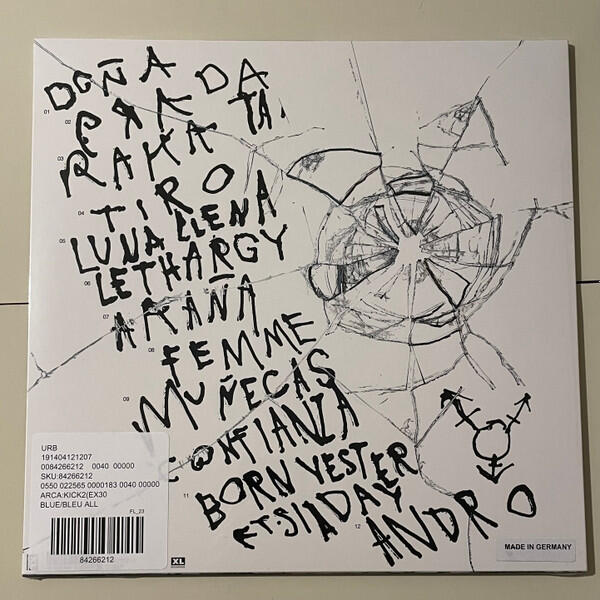 DOÑA
01
PRK DA
02
RAKA TA
03
TIRO
04
LUNA LLENA
05
LETHARGY
06
ARAÑA
07
FEMME
08
MUÑECAS
09
CONFIANZA
BORN YESTER
11
DAY
ANDRO
12
URB
191404121207
0084266212 0040 00000
SKU:84266212
0550 022565 0000183 0040 00000
ARCA:KICK2(EX30
BLUE/BLEU ALL
FL_23
84266212
XL
MADE IN GERMANY